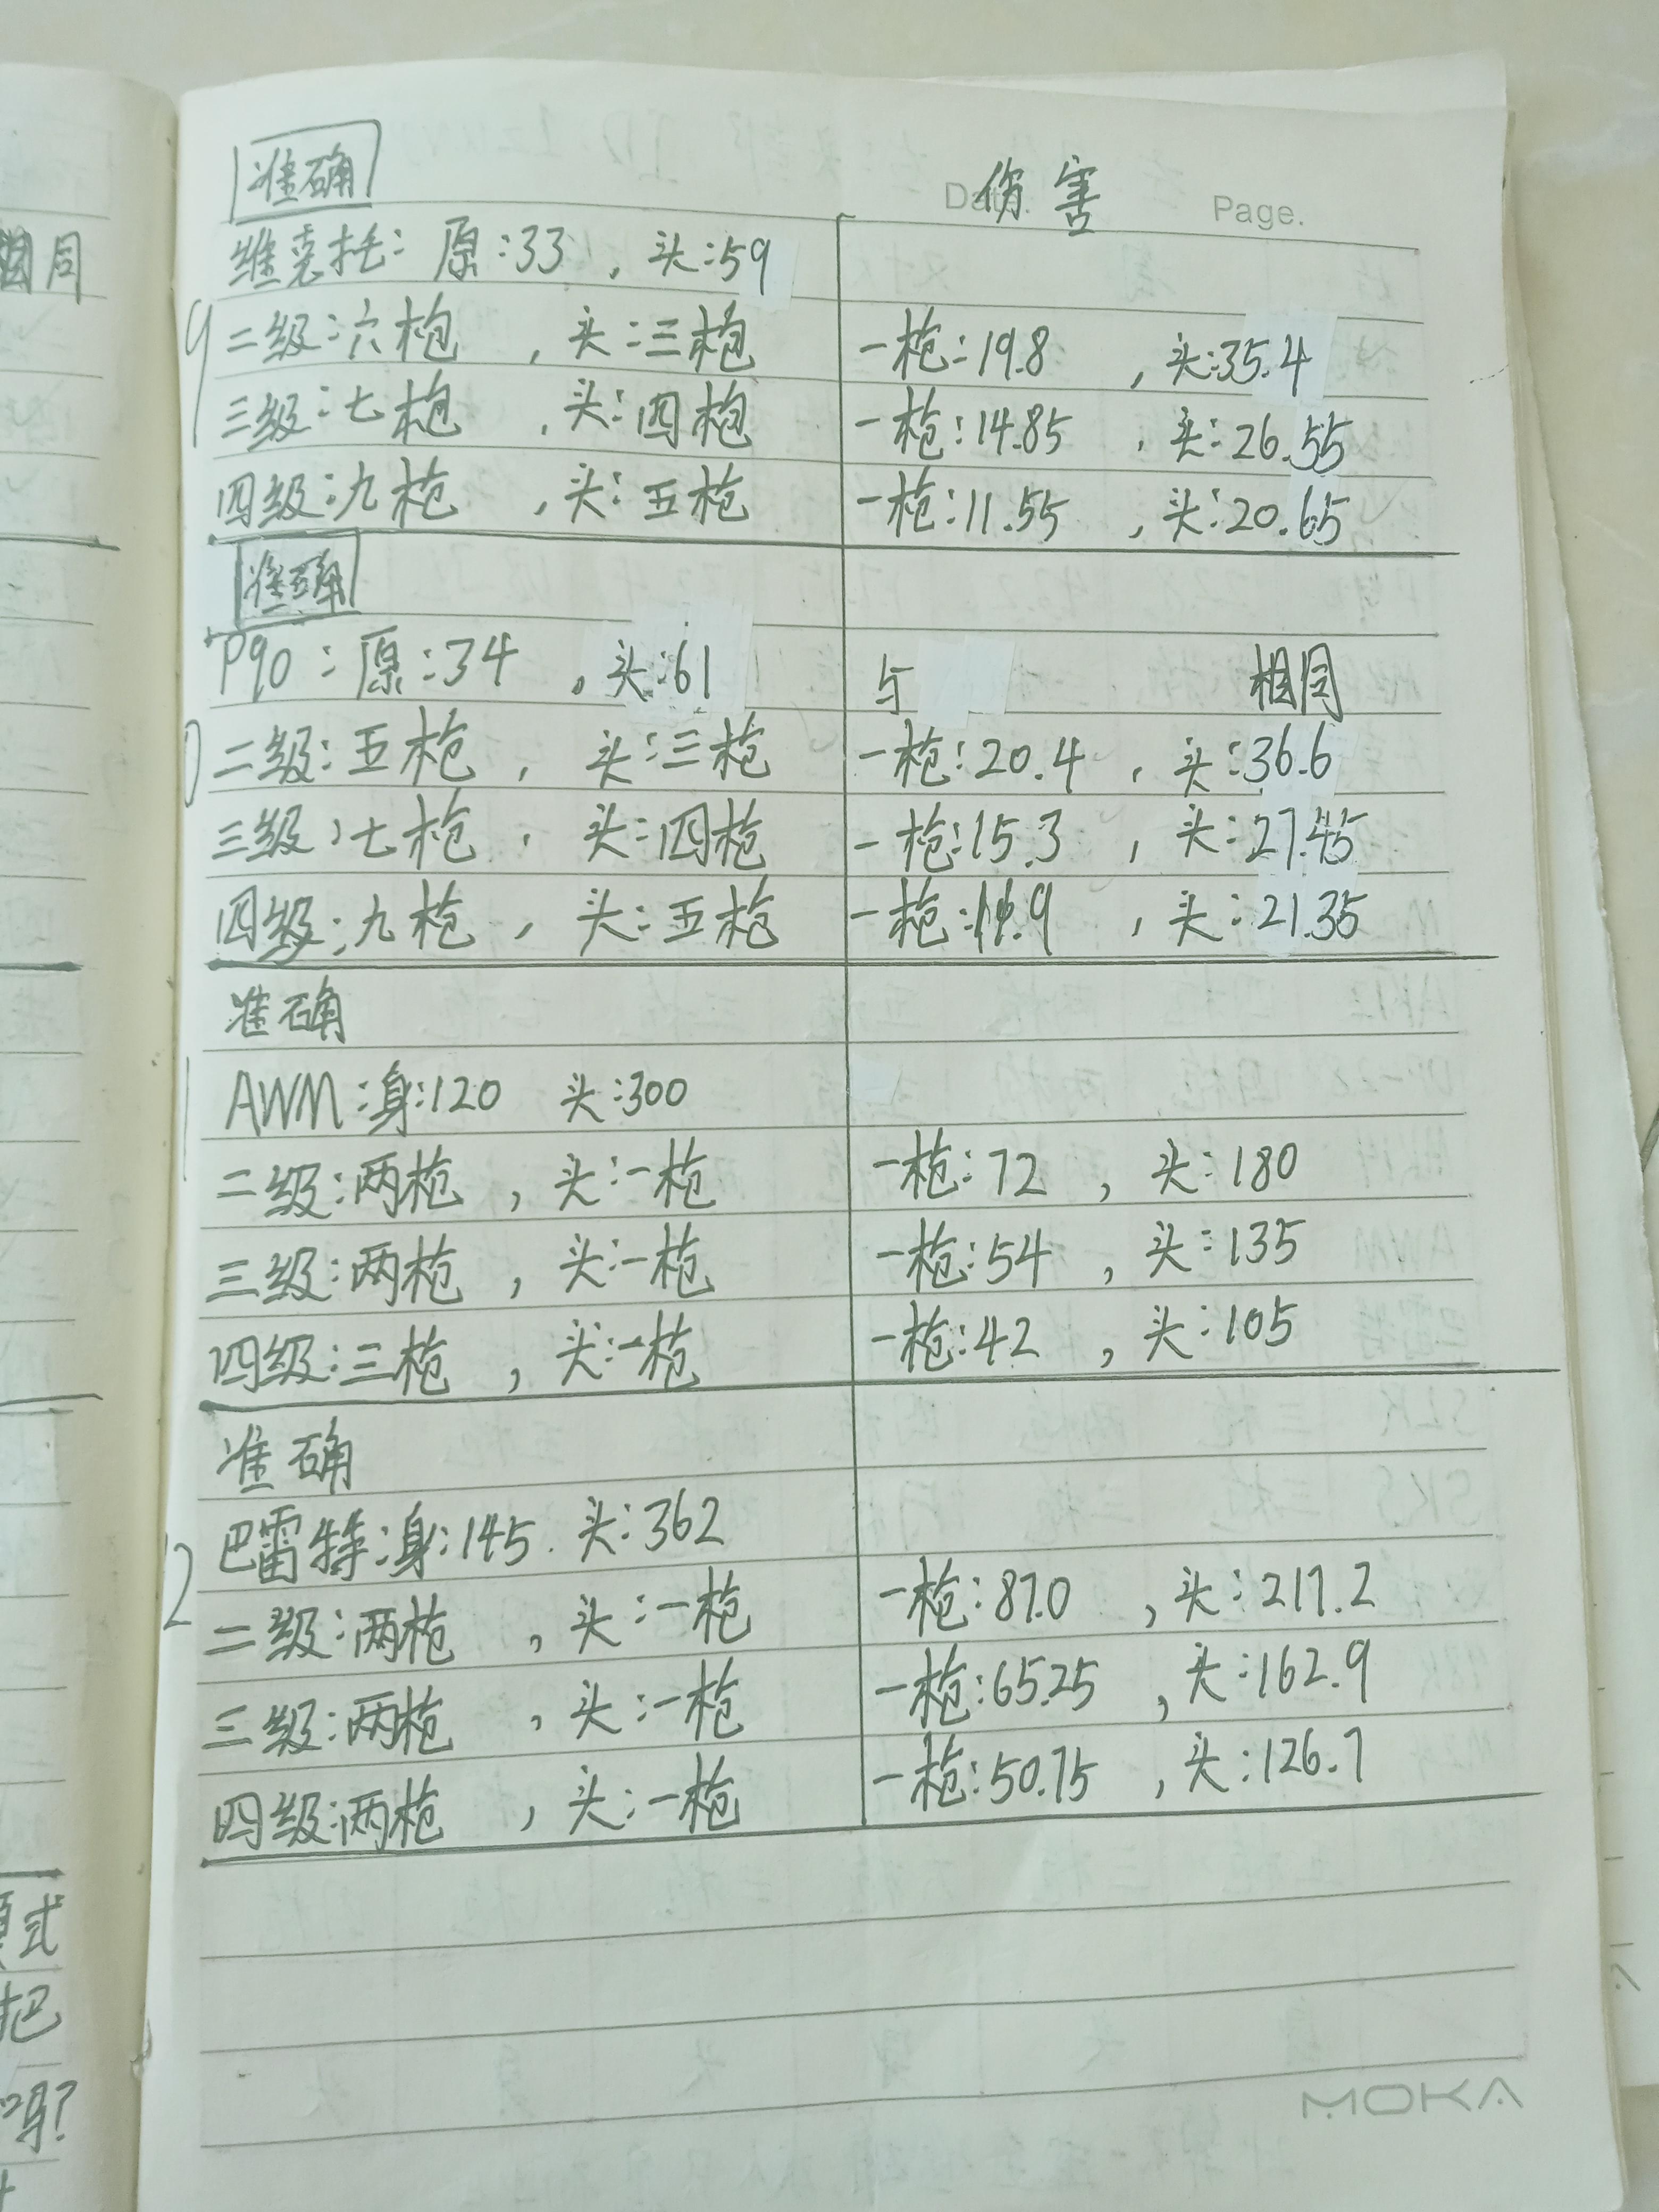 准确
Date. 伤害 Page.
维克托：原：33，头：59
9 二级：六枪，头：三枪 一枪：19.8，头：35.4
三级：七枪，头：四枪 一枪：14.85，头：26.55
四级：九枪，头：五枪 一枪：11.55，头：20.65
准确
P90：原：34，头：61 与 相同
二级：五枪，头：三枪 一枪：20.4，头：36.6
三级：七枪，头：四枪 一枪：15.3，头：27.45
四级：九枪，头：五枪 一枪：11.9，头：21.35
准确
AWM：身：120 头：300
二级：两枪，头：一枪 一枪：72，头：180
三级：两枪，头：一枪 一枪：54，头：135
四级：三枪，头：一枪 一枪：42，头：105
准确
巴雷特：身：145. 头：362
12 二级：两枪，头：一枪 一枪：87.0，头：217.2
三级：两枪，头：一枪 一枪：65.25，头：162.9
四级：两枪，头：一枪 一枪：50.75，头：126.7
MOKA
相同
式
把
吗?